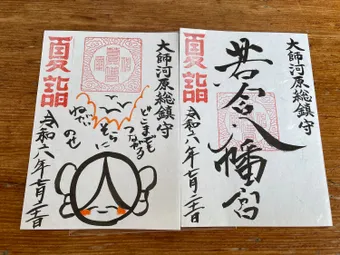 大師河原総鎮守
若宮八幡宮
夏詣
令和六年七月二十一日
大師河原総鎮守
どこまでも
つながる
そらに
のせ
夏詣
令和六年七月二十一日